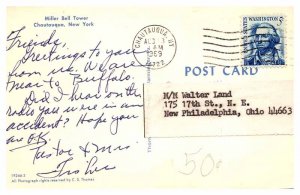 Miller Bell Tower
Chautauqua, New York
Friends,
Greetings to you
from us. We are
near to Buffalo.
Did I hear on the
radio you were in an
accident? Hope you
are OK.
Pastor & Mrs
CHAUTAUQUA, NY
OCT
AM
1969
14722
WASHINGTON
5¢
POST CARD
M/M Walter Land
175 17th St., N. E.
New Philadelphia, Ohio 44663
50¢
All Photograph rights reserved by C. E. Thomas